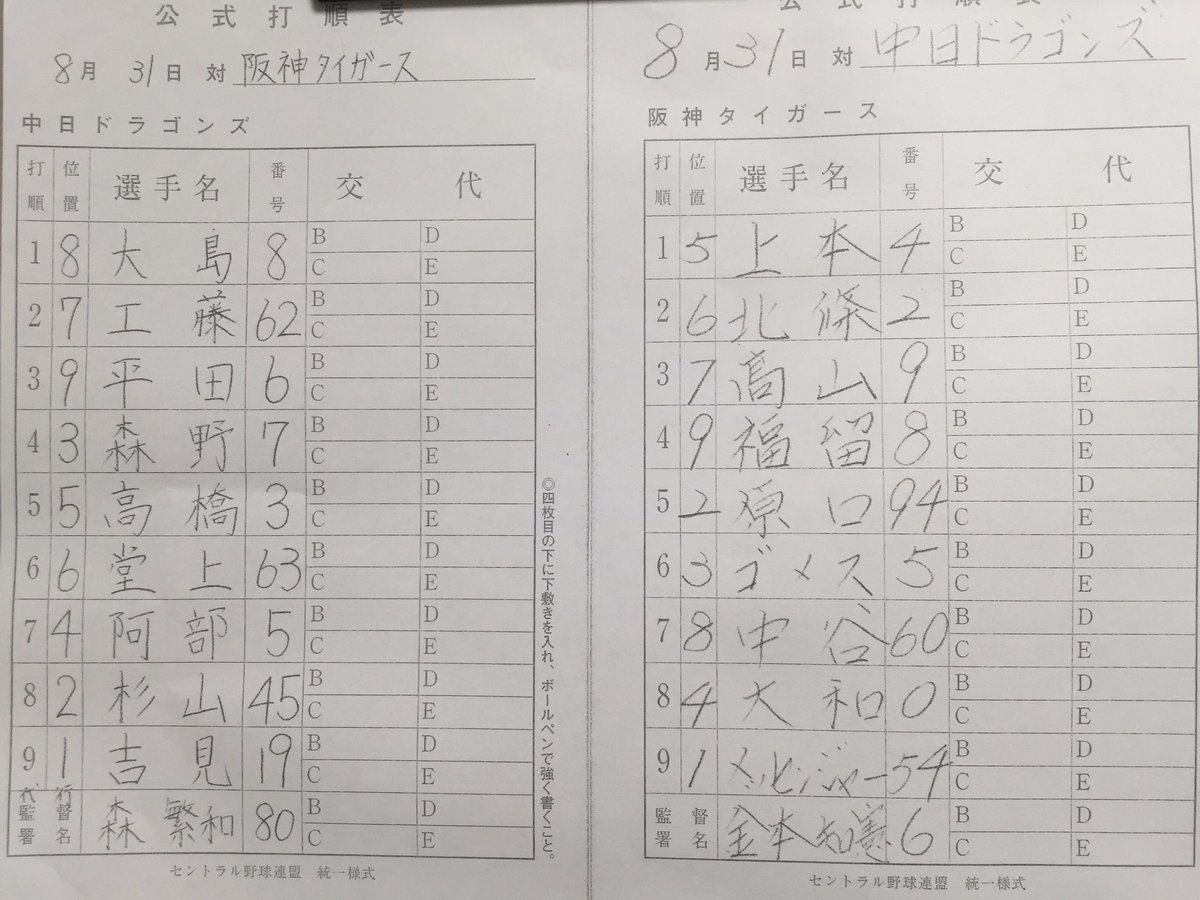 公式打順表
8月31日 対 阪神タイガース
中日ドラゴンズ
打順 位置 選手名 番号 交代
1 8 大島 8 B D C E
2 7 工藤 62 B D C E
3 9 平田 6 B D C E
4 3 森野 7 B D C E
5 5 高橋 3 B D C E
6 6 堂上 63 B D C E
7 4 阿部 5 B D C E
8 2 杉山 45 B D C E
9 1 吉見 19 B D C E
代行監督署名 森繁和 80 B D C E
セントラル野球連盟 統一様式
◎四枚目の下に下敷きを入れ、ボールペンで強く書くこと。
公式打順表
8月31日 対 中日ドラゴンズ
阪神タイガース
打順 位置 選手名 番号 交代
1 5 上本 4 B D C E
2 6 北條 2 B D C E
3 7 高山 9 B D C E
4 9 福留 8 B D C E
5 2 原口 94 B D C E
6 3 ゴメス 5 B D C E
7 8 中谷 60 B D C E
8 4 大和 0 B D C E
9 1 メッセンジャー 54 B D C E
監督署名 金本知憲 6 B D C E
セントラル野球連盟 統一様式